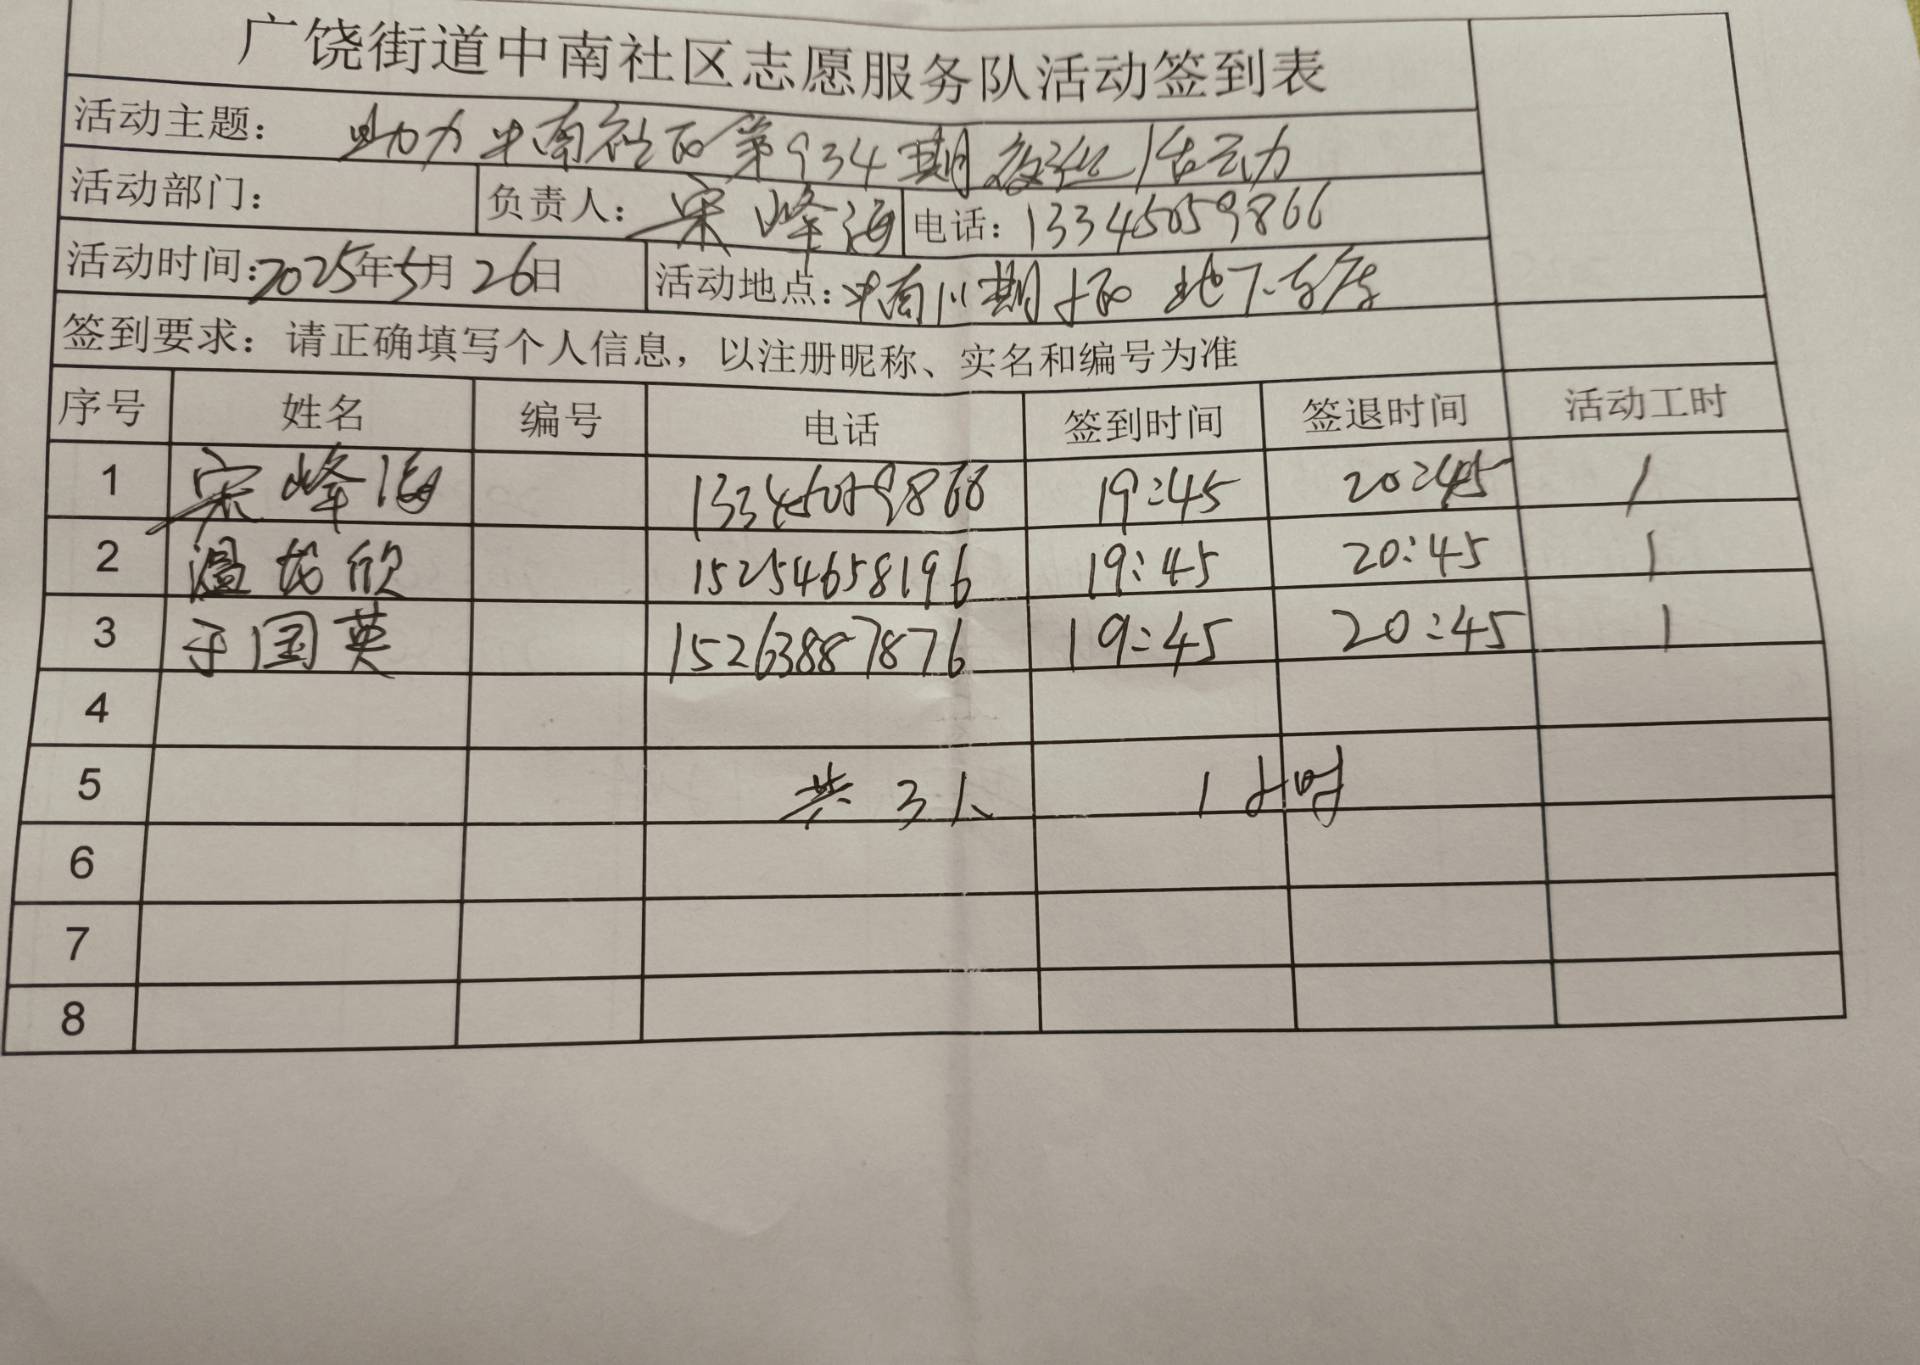 广饶街道中南社区志愿服务队活动签到表
活动主题： 助力中南社区第934期 活动
活动部门： 负责人：宋峰海 电话：13345059866
活动时间：2025年5月26日 活动地点：中南 期 地下车库
签到要求：请正确填写个人信息，以注册昵称、实名和编号为准
序号 姓名 编号 电话 签到时间 签退时间 活动工时
1 宋峰海 13345059866 19:45 20:45 1
2 温 欣 15254658196 19:45 20:45 1
3 于国英 15263887876 19:45 20:45 1
4
5 共3人 1小时
6
7
8